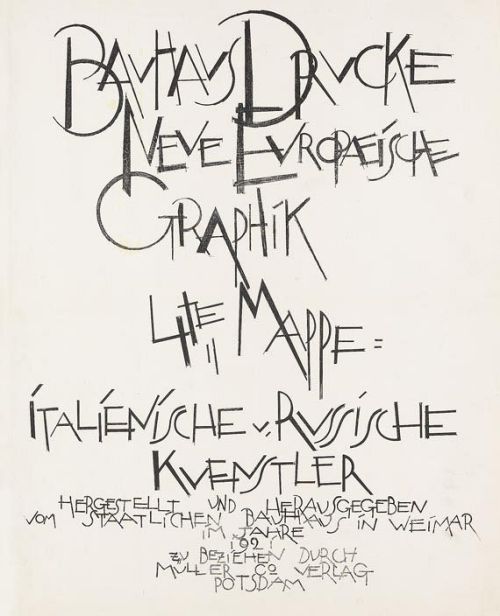 BAUHAUS DRUCKE
NEUE EUROPAEISCHE
GRAPHIK
4TE MAPPE =
ITALIENISCHE u. RUSSISCHE
KUENSTLER
HERGESTELLT UND HERAUSGEGEBEN
VOM STAATLICHEN BAUHAUS IN WEIMAR
IM JAHRE
1921
ZU BEZIEHEN DURCH
MÜLLER & CO VERLAG
POTSDAM